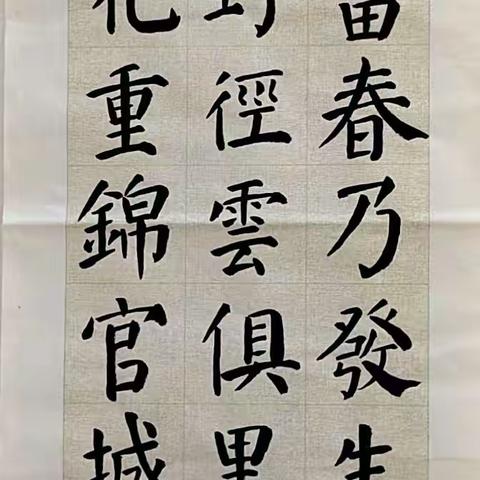 當春乃發生
野徑雲俱黑
花重錦官城